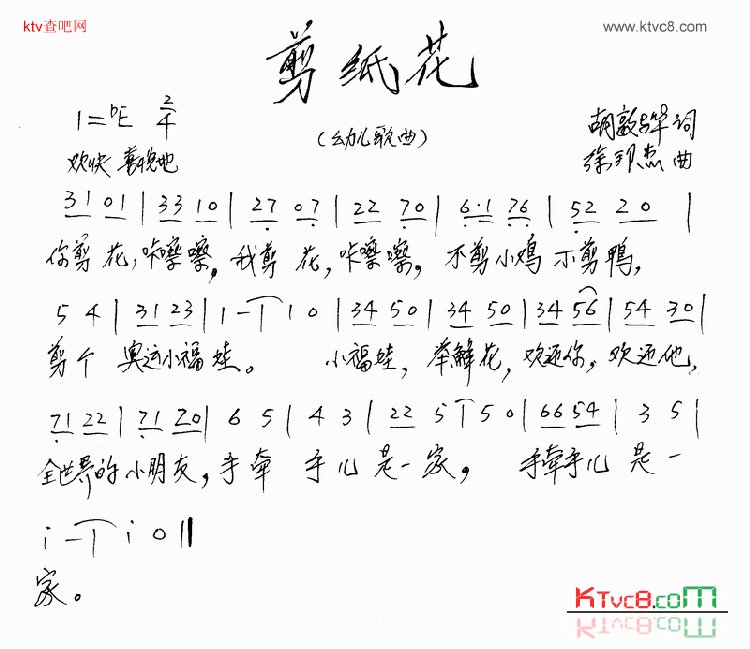 ktv查吧网
www.ktvc8.com
剪纸花
1=♭E 2/4
（幼儿歌曲）
胡敦骅词
欢快 喜悦地
徐邦杰曲
31 01 | 33 10 | 27 07 | 22 70 | 6·1 76 | 52 20 |
你剪花，咔嚓嚓，我剪花，咔嚓嚓，不剪小鸡不剪鸭，
5 4 | 31 23 | 1 - | 1 0 | 34 50 | 34 50 | 34 56 | 54 30 |
剪个奥运小福娃。 小福娃，举鲜花，欢迎你，欢迎他，
71 22 | 71 20 | 6 5 | 4 3 | 22 5 | 5 0 | 66 54 | 3 5 |
全世界的小朋友，手牵手儿是一家， 手牵手儿是一
i - | i 0 ‖
家。
KTvc8.com